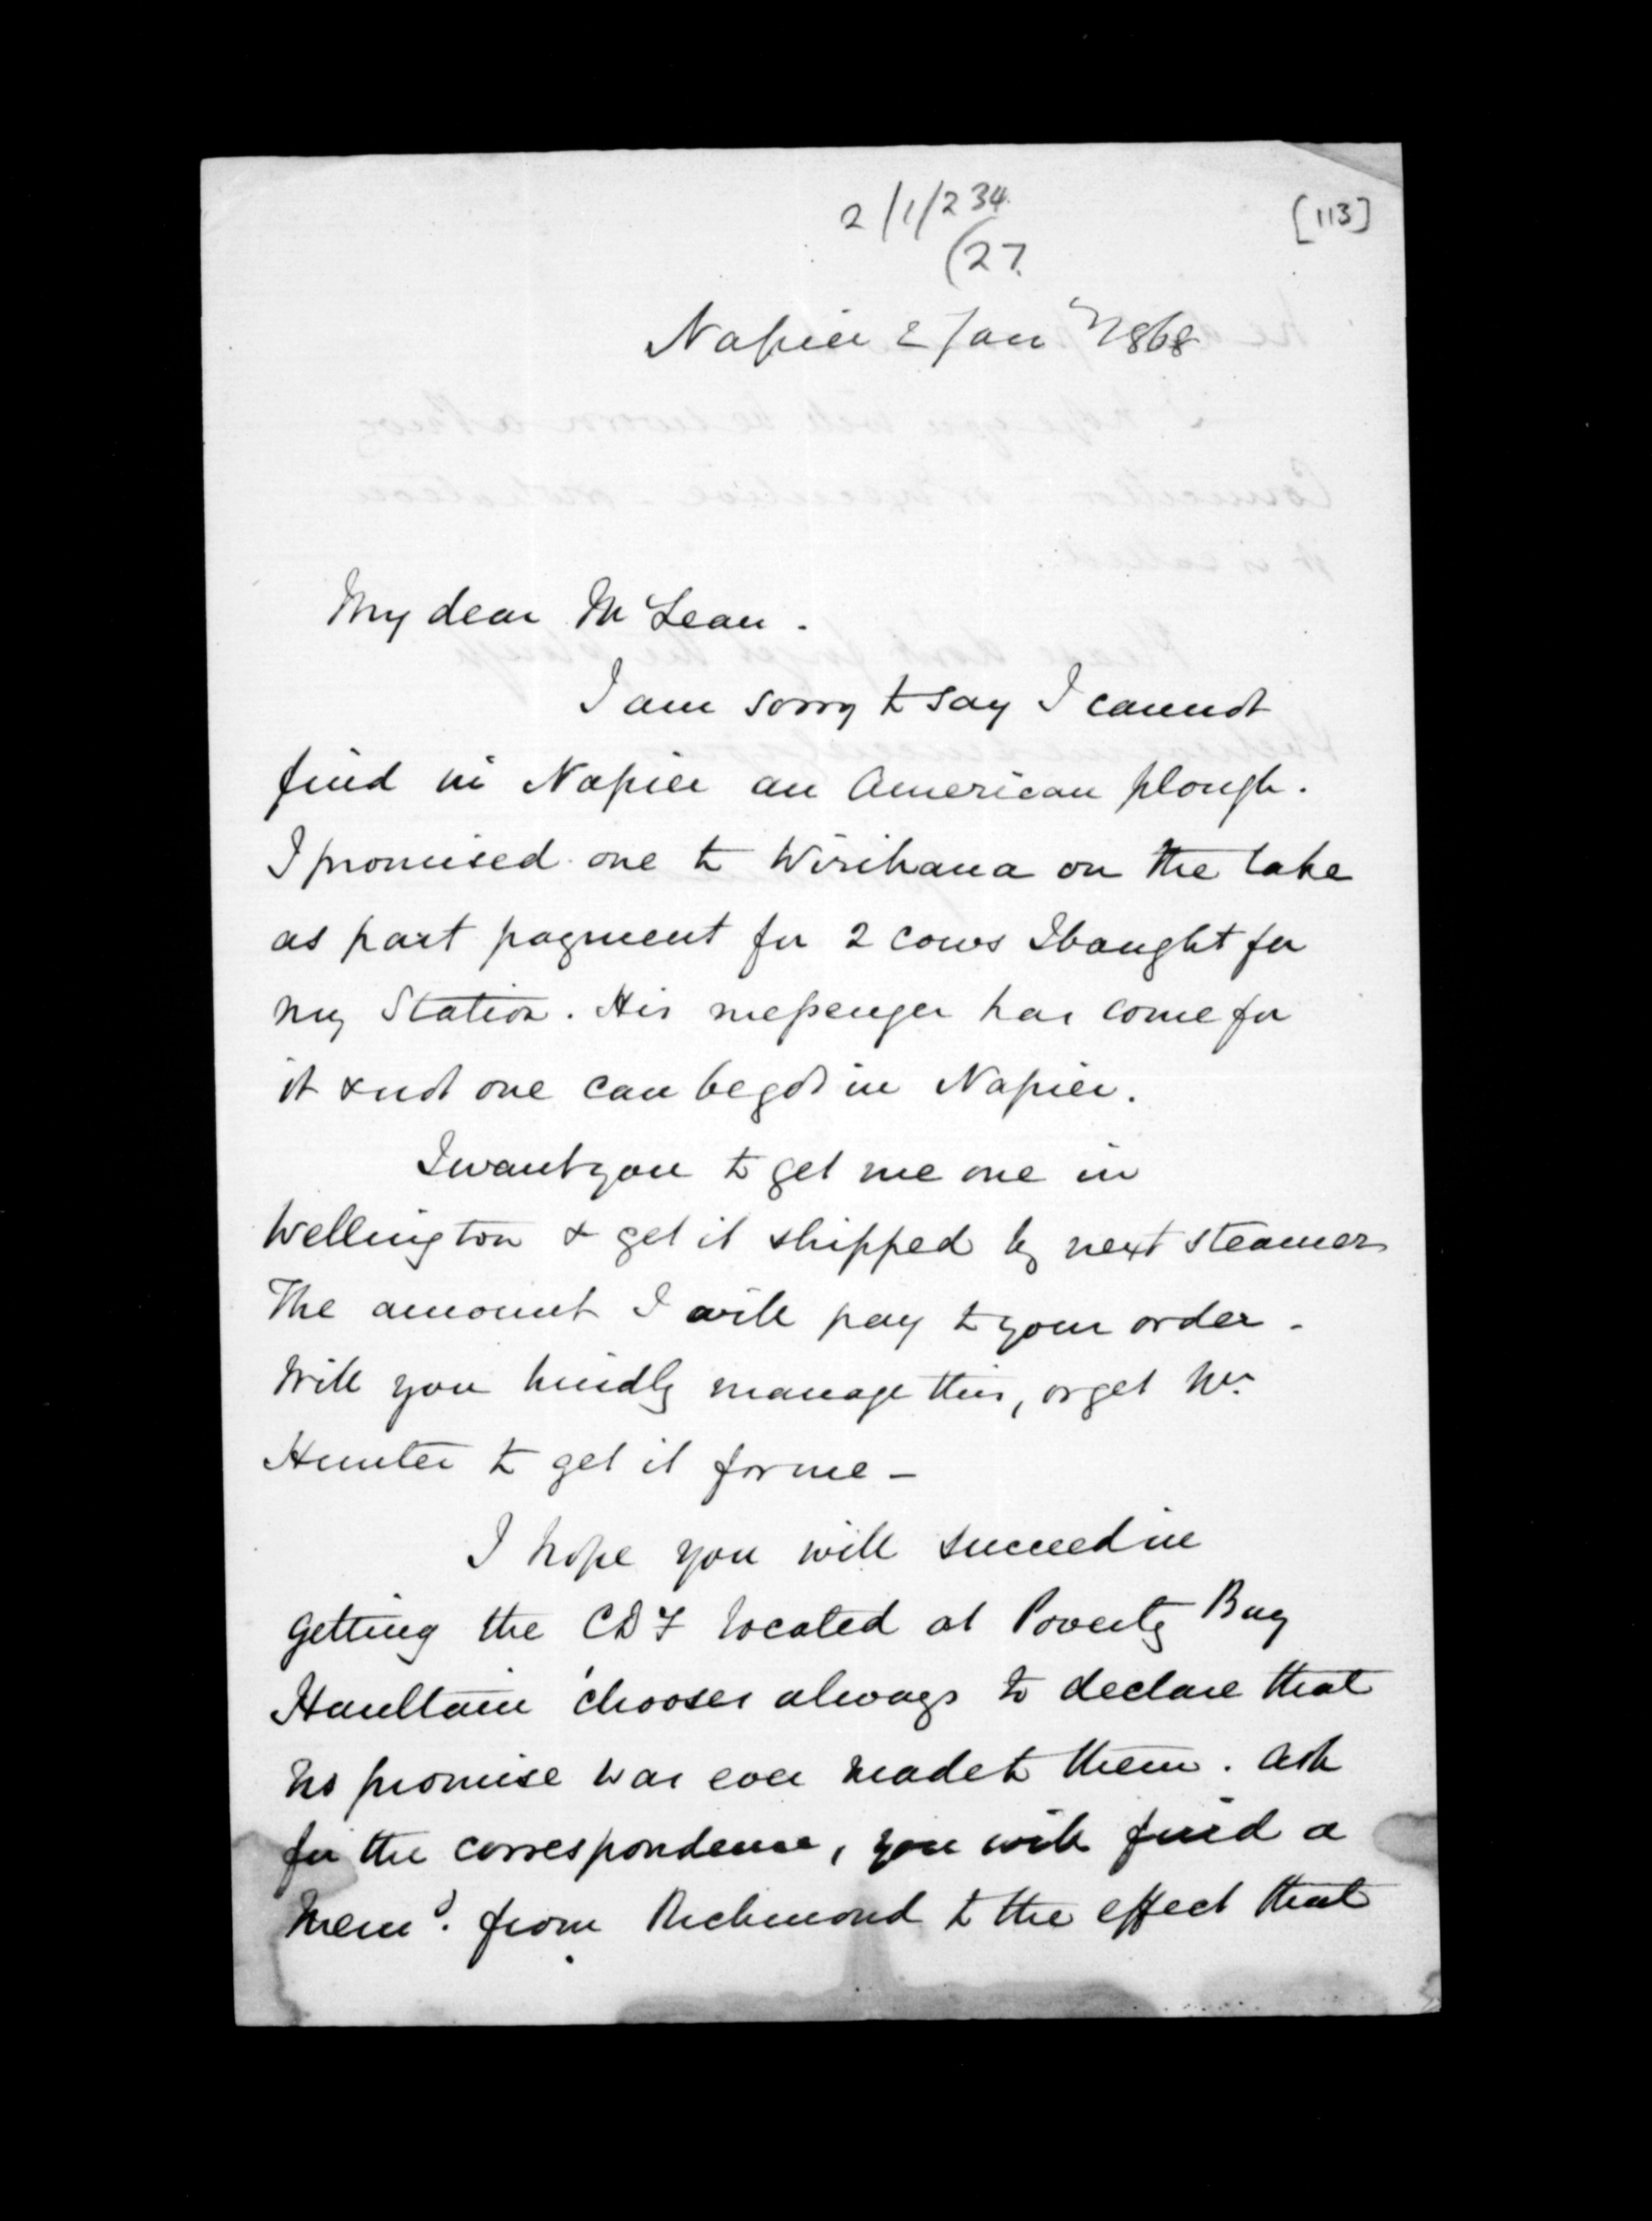 2/1/234
(27.
[113]
Napier 2 Jany 1868
My dear McLean.
I am sorry to say I cannot
find in Napier an American plough.
I promised one to Wirihana on the lake
as part payment for 2 cows I bought for
my Station. His messenger has come for
it & not one can be got in Napier.
I want you to get me one in
Wellington & get it shipped by next steamer
The amount I will pay to your order -
Will you kindly manage this, or get Mr.
Hunter to get it for me -
I hope you will succeed in
getting the CDF located at Poverty Bay
Haultain chooses always to declare that
no promise was ever made to them. Ask
for the correspondence, you will find a
Memo. from Richmond to the effect that